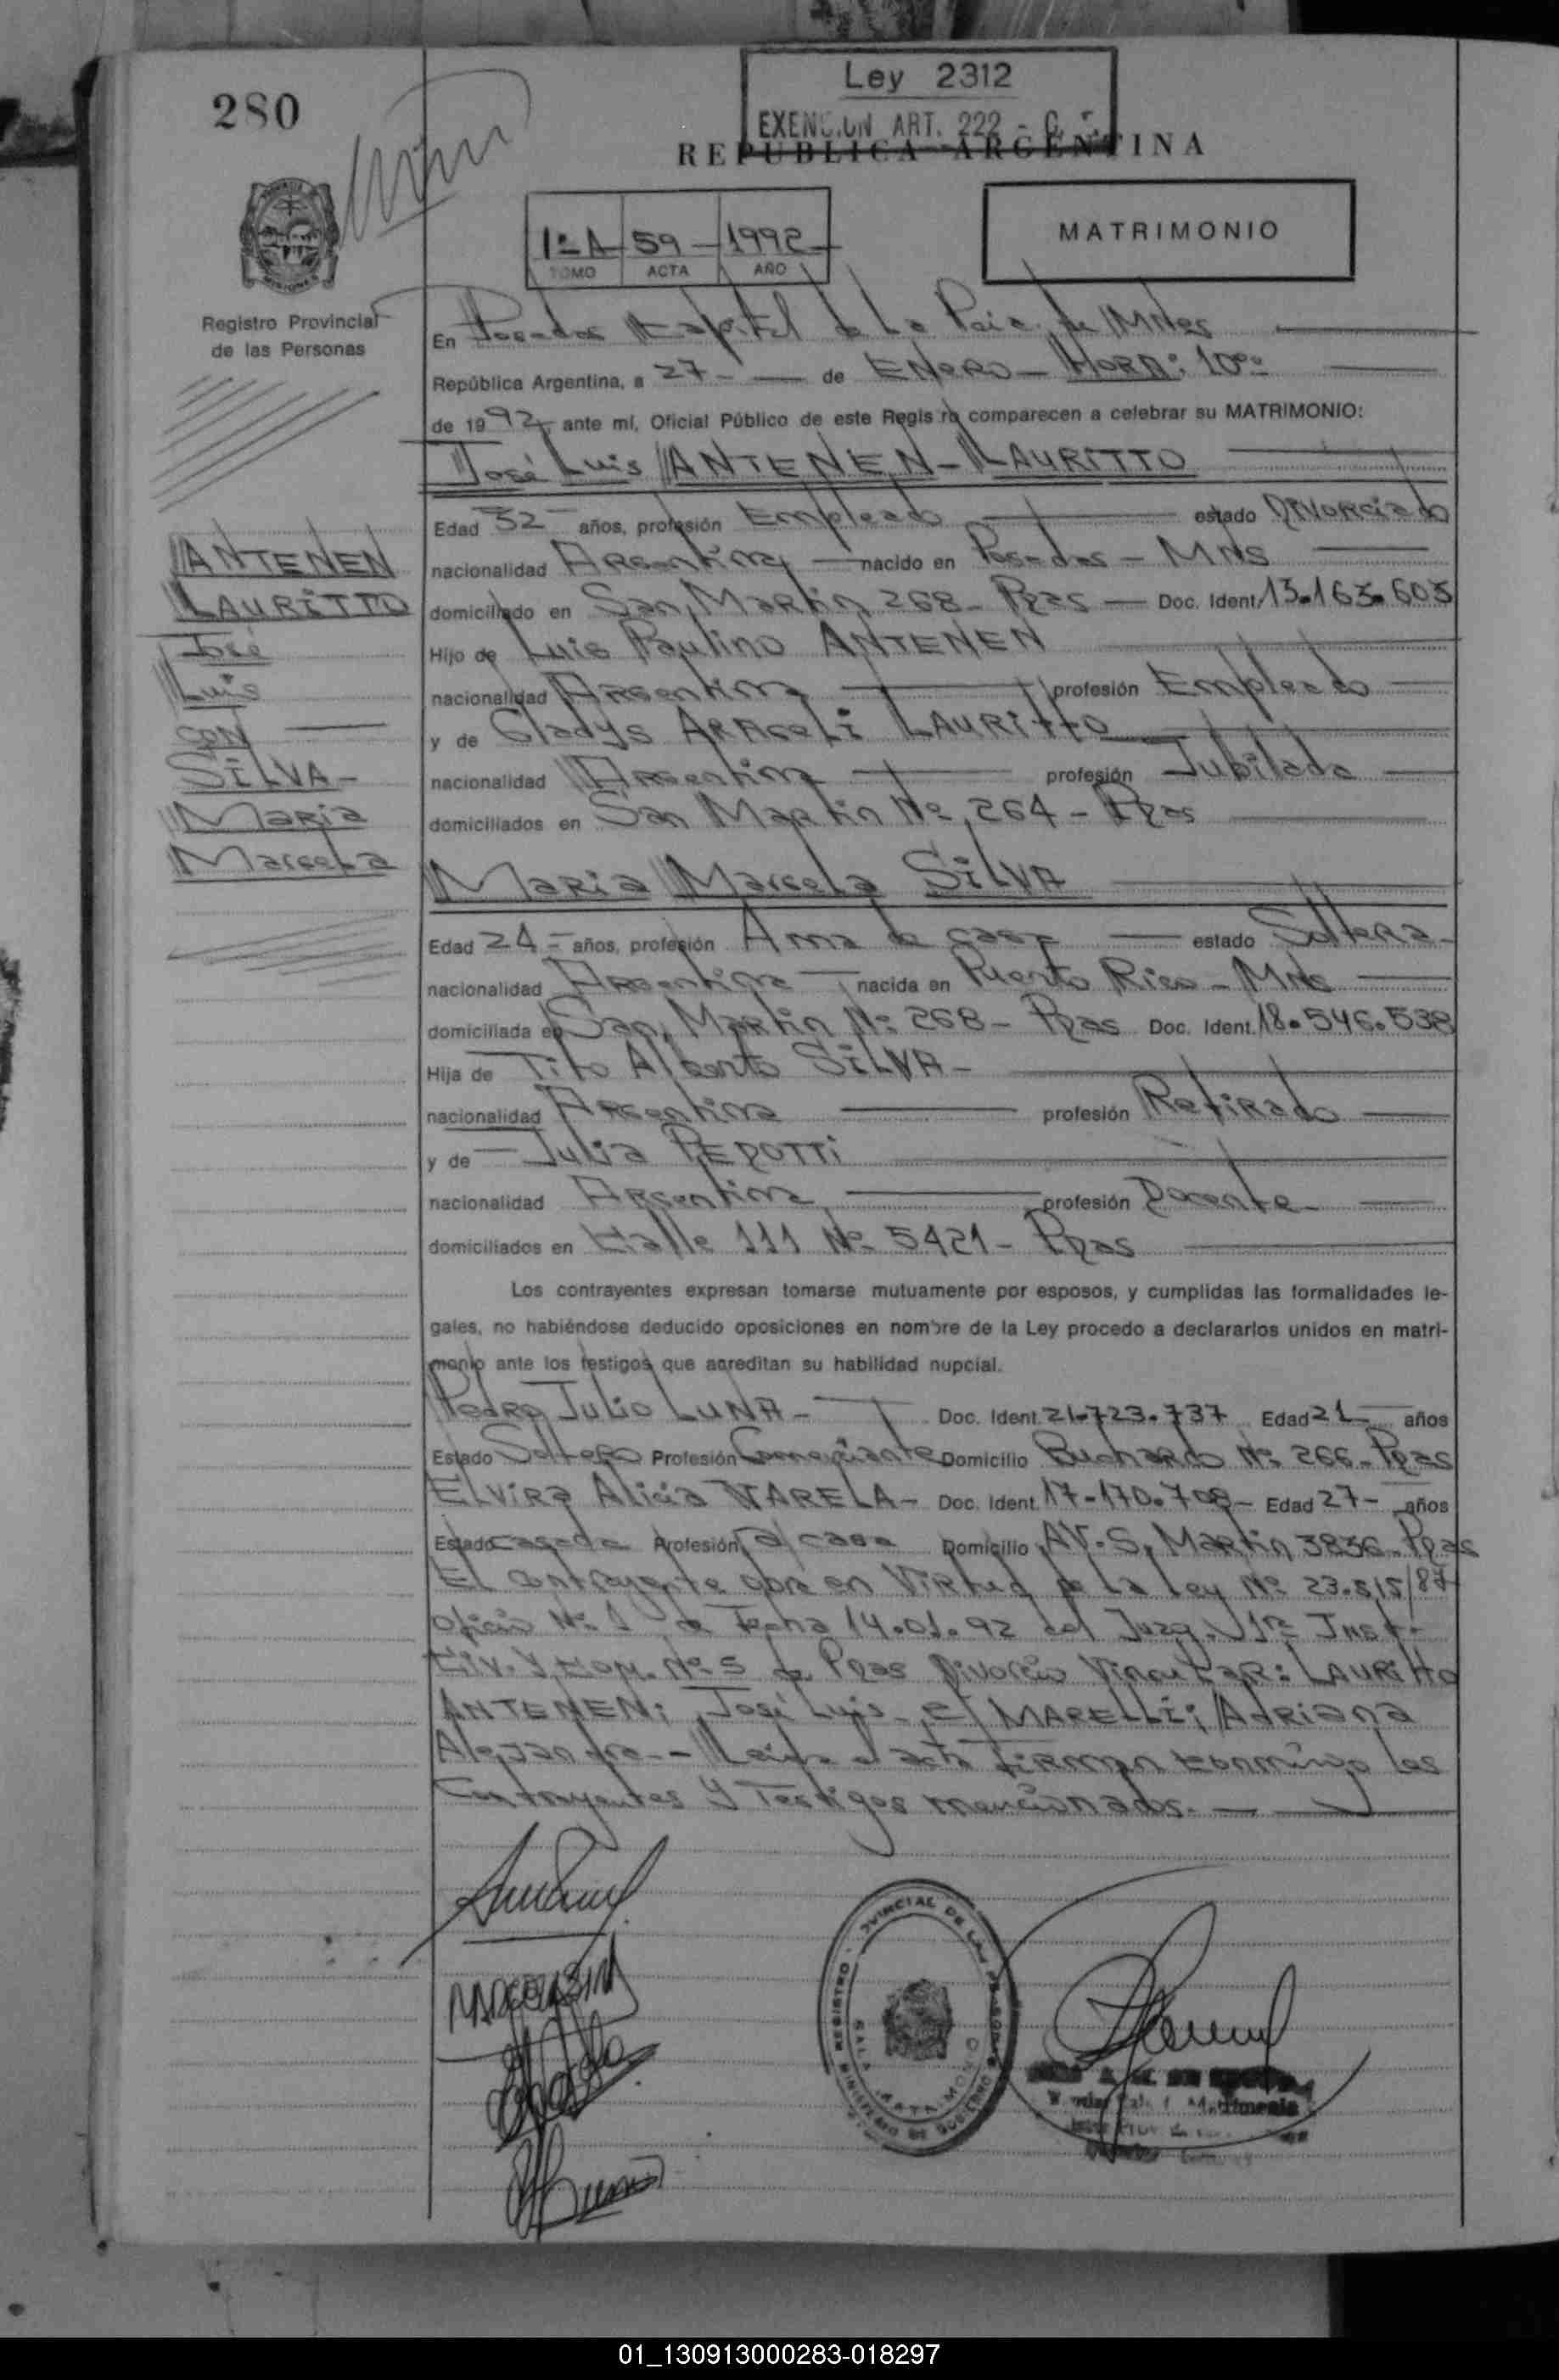 280
Ley 2312
EXENCION ART. 222 - C.
REPUBLICA ARGENTINA
1º A 59 - 1992
TOMO ACTA AÑO
MATRIMONIO
Registro Provincial
de las Personas
En Posadas Capital de La Pcia. de Mnes
República Argentina, a 27 - de ENERO - HORA: 10
de 1992, ante mí, Oficial Público de este Registro comparecen a celebrar su MATRIMONIO:
José Luis ANTENEN - LAURITTO
Edad 32 años, profesión Empleado estado Divorciado
nacionalidad Argentina nacido en Posadas - MNS
domiciliado en San Martin 268 - Pdas - Doc. Ident. 13.163.603
Hijo de Luis Paulino ANTENEN
nacionalidad Argentina profesión Empleado
y de Gladys ARAceli LAURITTO
nacionalidad Argentina profesión Jubilada
domiciliados en San Martin Nº 264 - Pdas
ANTENEN
LAURITTO
José
Luis
CON
SILVA -
Maria
Marcela
Maria Marcela SILVA
Edad 24 - años, profesión Ama de casa estado Soltera -
nacionalidad Argentina nacida en Puerto Rico - Mns
domiciliada en San Martin Nº 268 - Pdas Doc. Ident. 18.546.538
Hija de Tito Alberto SILVA -
nacionalidad Argentina profesión Retirado
y de Julia PEROTTI
nacionalidad Argentina profesión Docente
domiciliados en Calle 111 Nº 5421 - Pdas
Los contrayentes expresan tomarse mutuamente por esposos, y cumplidas las formalidades le-
gales, no habiéndose deducido oposiciones en nombre de la Ley procedo a declararlos unidos en matri-
monio ante los testigos que acreditan su habilidad nupcial.
Pedro Julio LUNA - Doc. Ident. 21.723.737 Edad 21 años
Estado Soltero Profesión Comerciante Domicilio Buchardo Nº 266 - Pdas
ELVIRA Alicia VARELA - Doc. Ident. 17.170.708 - Edad 27 - años
Estado casada Profesión a/casa Domicilio AV. S. Martin 3836 - Pdas
El contrayente obra en Virtud de la Ley Nº 23.515/87
Oficio Nº 1 de Fecha 14.01.92 del Juzg. 1ra Inst.
Civ. y Com. Nº 5 de Pdas Divorcio Vincular: LAURITTO
ANTENEN; José Luis - c/ MARELLI; Adriana
Alejandra - Leida el acta firman conmigo los
Contrayentes y Testigos mencionados. -
REGISTRO PROVINCIAL DE LAS PERSONAS
SALA MATRIMONIO
MINISTERIO DE GOBIERNO
01_130913000283-018297